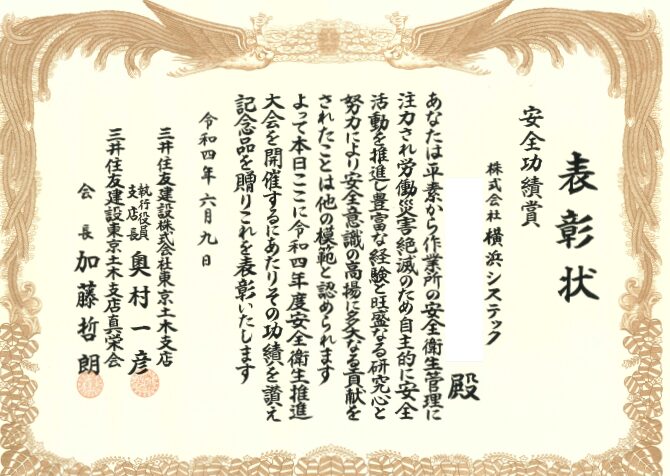 表彰状
安全功績賞
株式会社 横浜システック
殿
あなたは平素から作業所の安全衛生管理に
注力され労働災害絶滅のため自主的に安全
活動を推進し豊富な経験と旺盛なる研究心と
努力により安全意識の高揚に多大なる貢献を
されたことは他の模範と認められます
よって本日ここに令和四年度安全衛生推進
大会を開催するにあたりその功績を讃え
記念品を贈りこれを表彰いたします
令和四年六月九日
三井住友建設株式会社東京土木支店
執行役員
支店長 奥村一彦
三井住友建設東京土木支店真栄会
会長 加藤哲朗